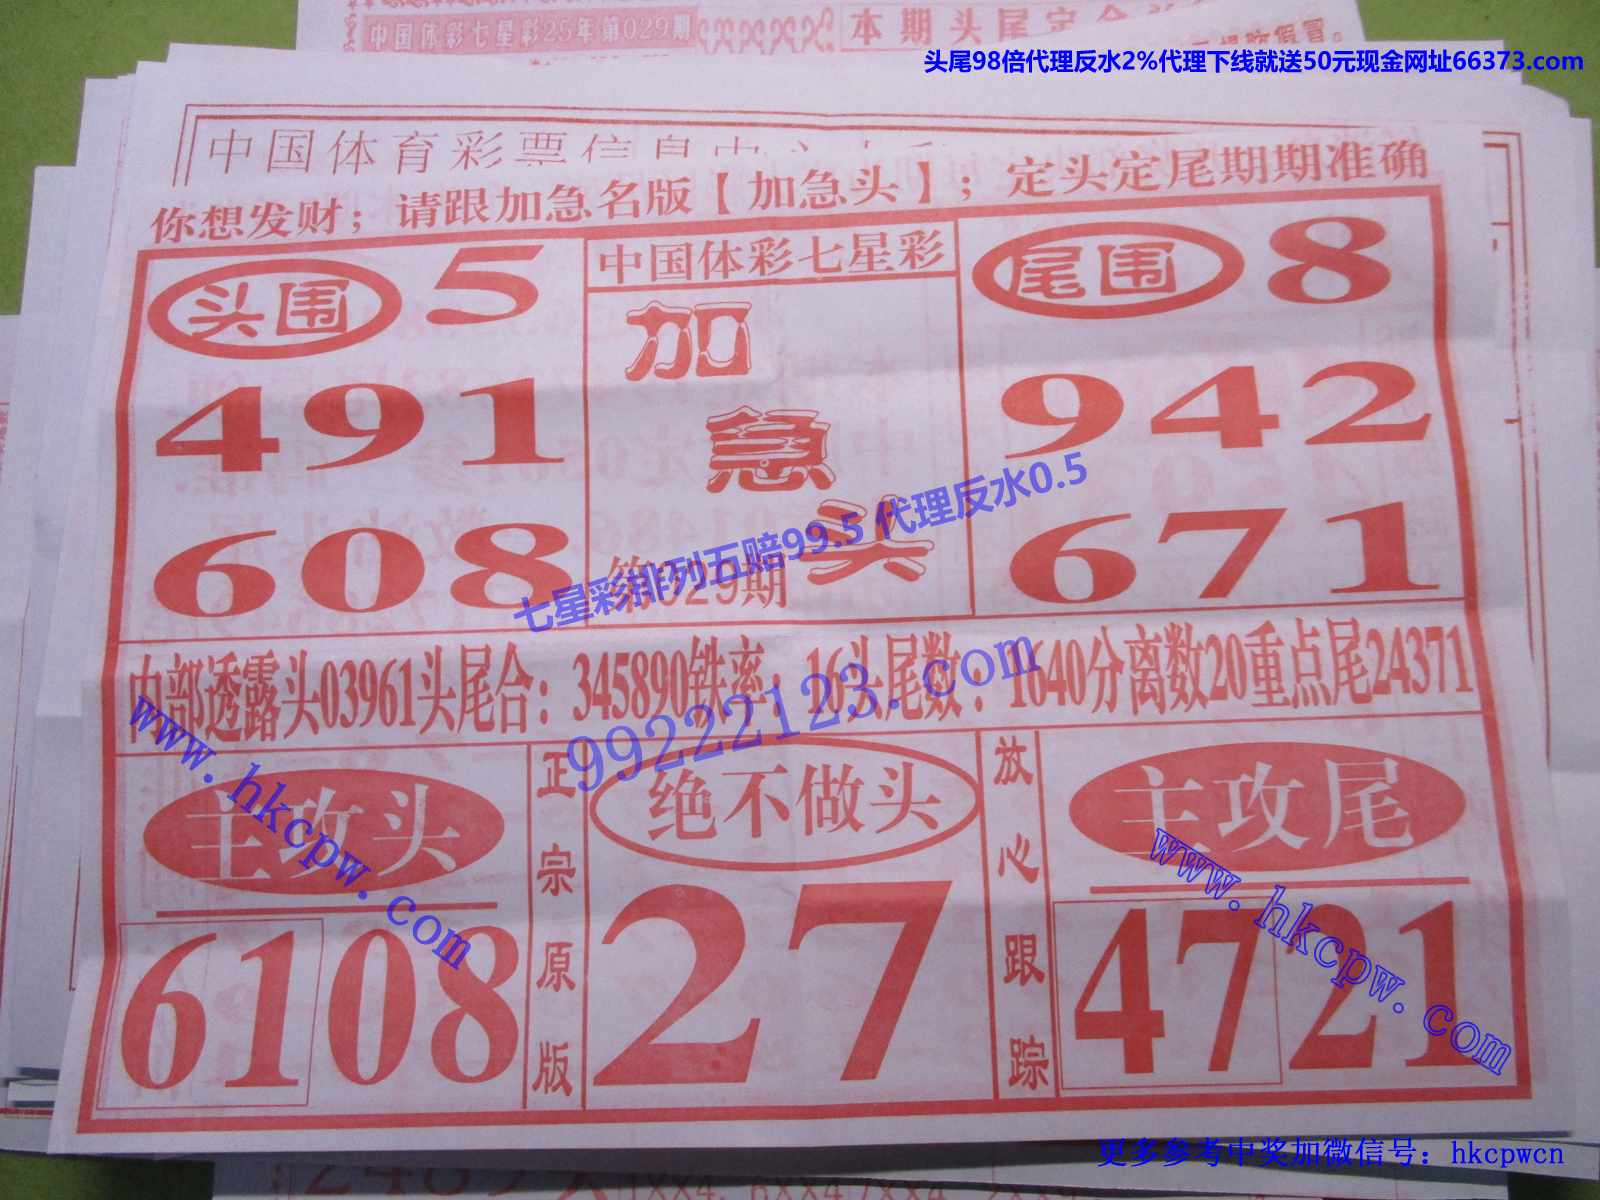 中国体彩七星彩25年第029期
本期头尾定
头尾98倍代理反水2%代理下线就送50元现金网址66373.com
中国体育彩票信息中心
你想发财；请跟加急名版【加急头】；定头定尾期期准确
头围 5
491
608
中国体彩七星彩
加急头
第029期
尾围 8
942
671
七星彩排列五赔99.5 代理反水0.5
内部透露头03961头尾合：345890铁率：16头尾数：1640分离数20重点尾24371
99222123.com
主攻头
6108
www.hkcpw.com
正宗原版
绝不做头
27
放心跟踪
主攻尾
4721
www.hkcpw.com
更多参考中奖加微信号：hkcpwcn